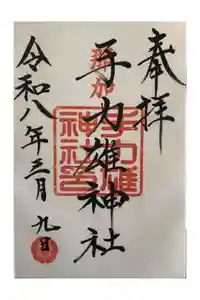 奉拝
那加
手力雄神社
手力雄
神社
令和八年三月九日